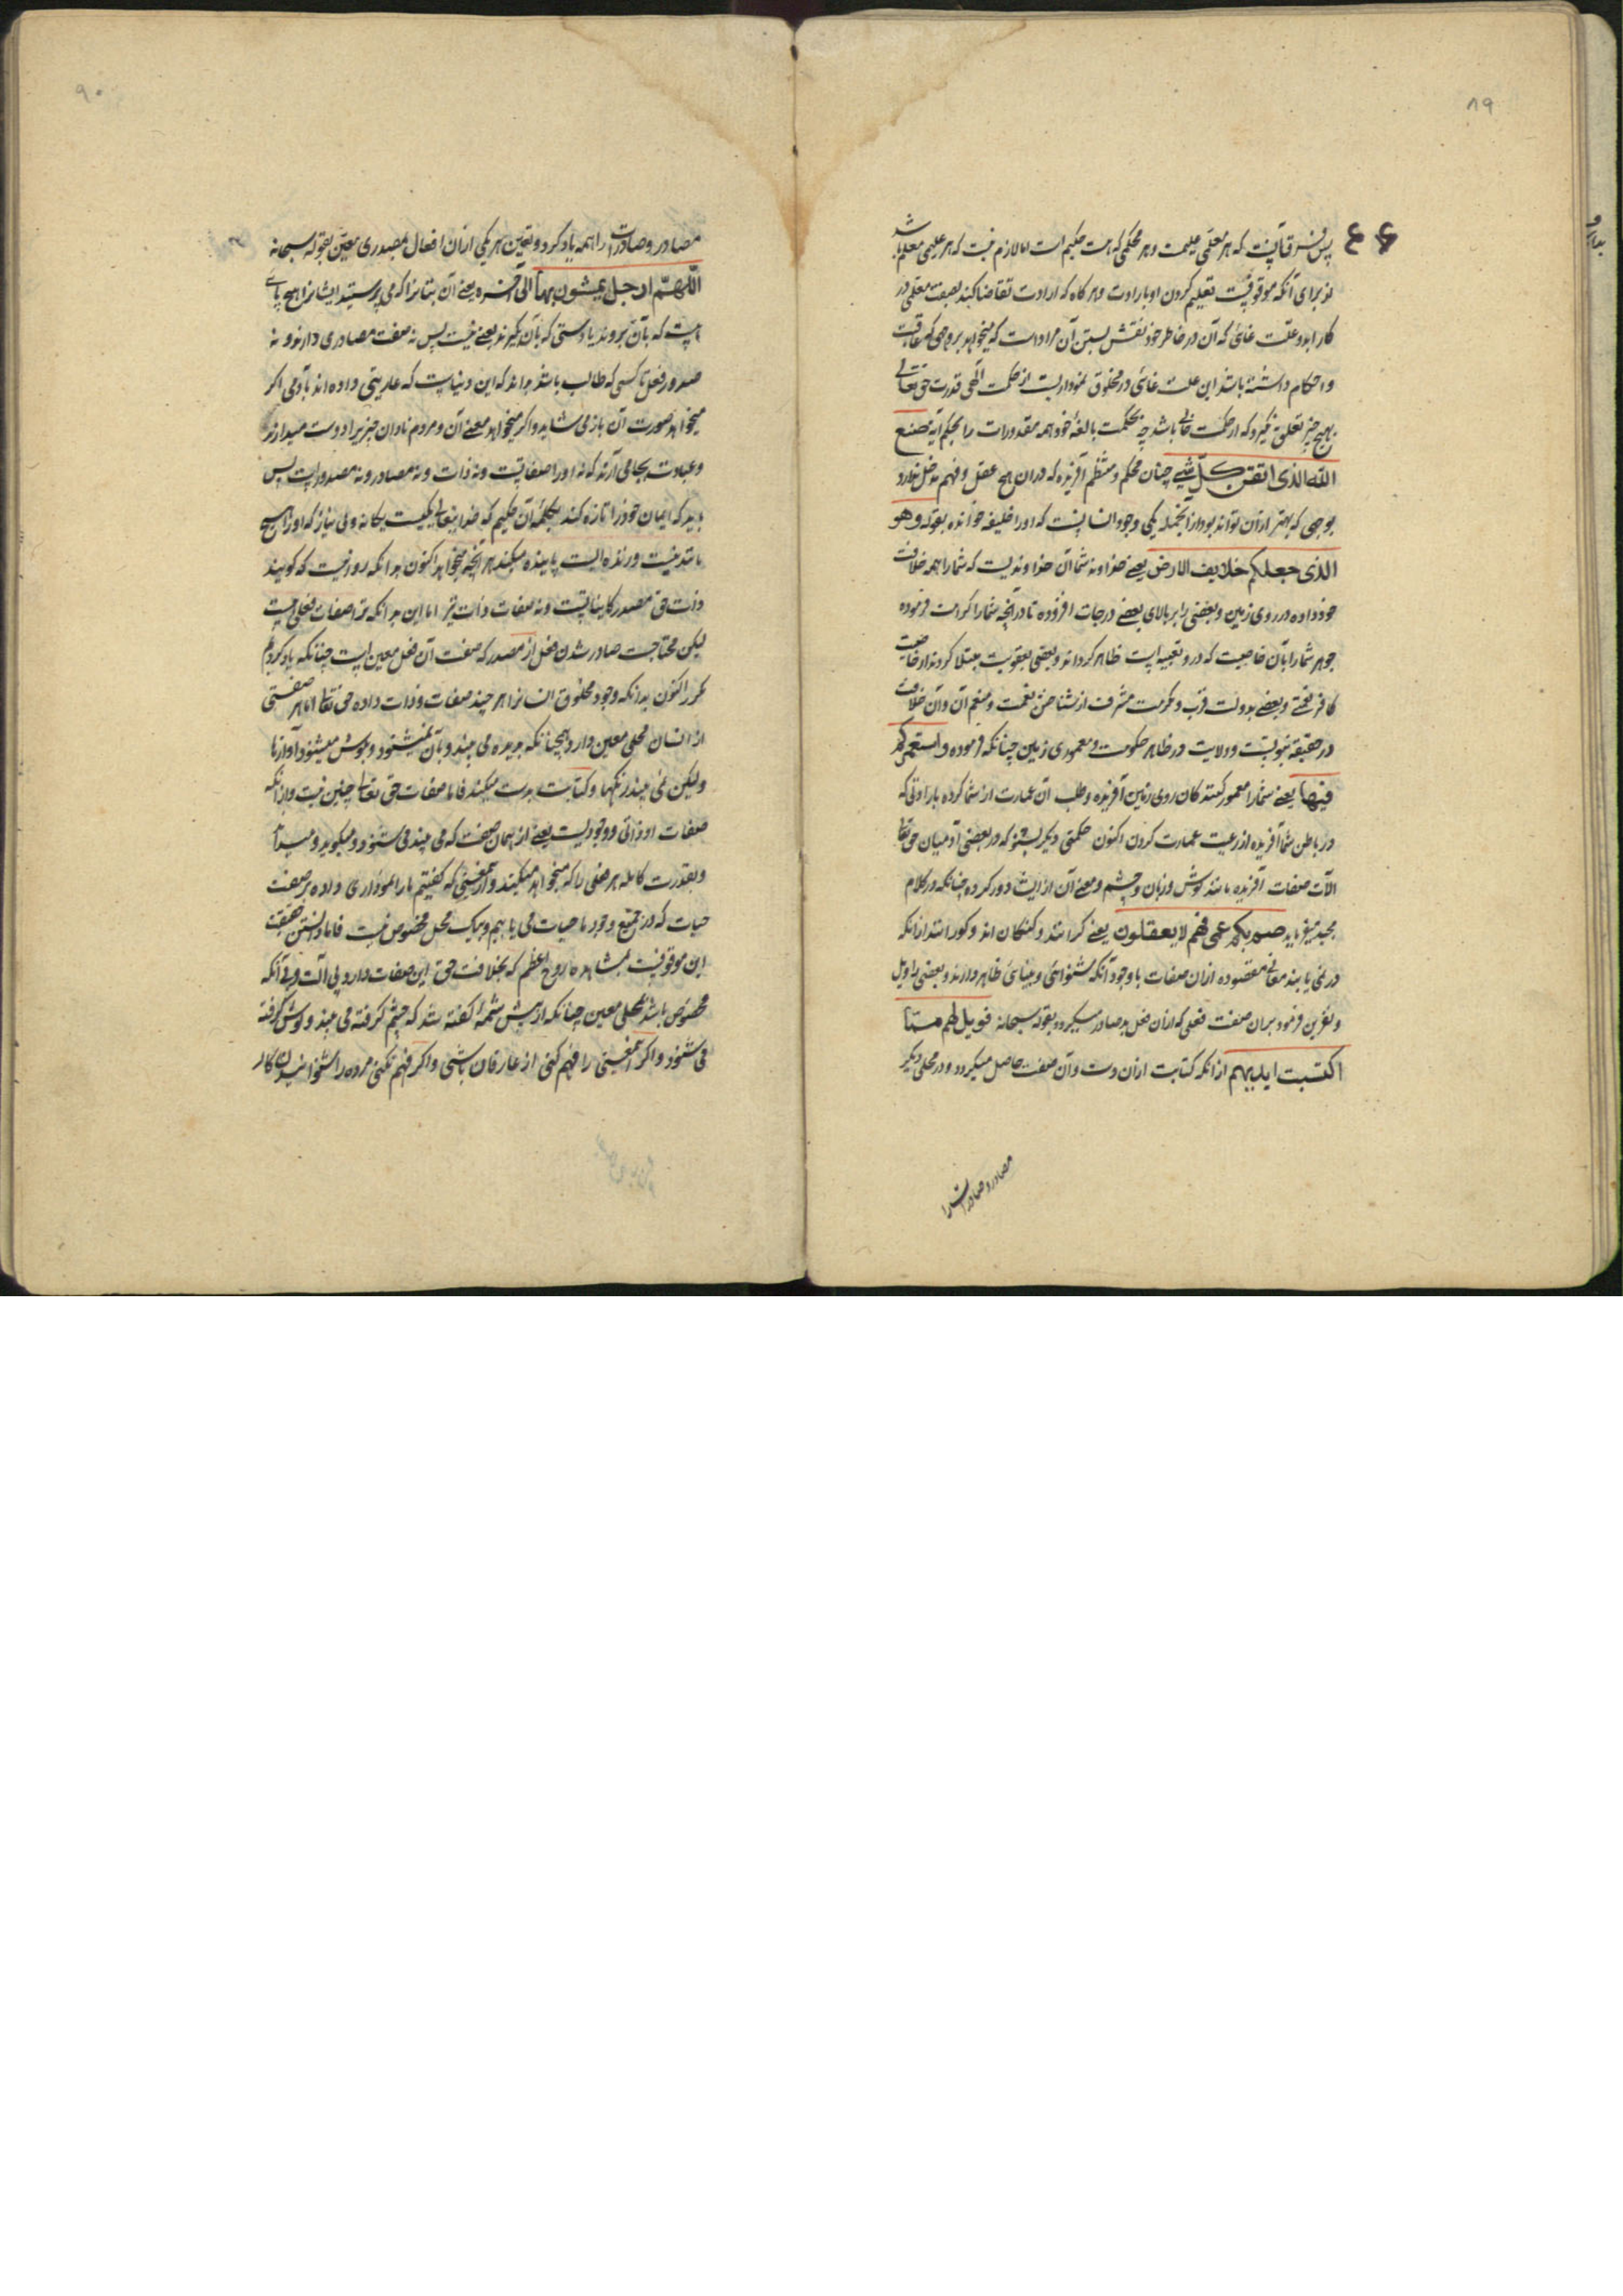 ۸۹
پس فرق آنست که هر معلمی علیمست و هر محکمی که هست حکیم است اما لازم نیست که هر علیمی معلم باشد
از برای آنکه موقوفیست تعلیم کردن او بارادت و هر کاه که ارادت تقاضا کند بصفت معلمی در
کار اید و علت غائی که آن در خاطر خود نقش بستن آن مراد است که میخواهد بروجهی که عاقبت
و احکام دانسته باشد این علت غائی در مخلوق نموداریست از حکمت الهی قدرت حق تعالی
بهیچ چیز تعلق نکیرد که از حکمت خالی باشد چه بحکمت بالغهٔ خود همه مقدورات را بحکم آیه صنع
الله الذی اتقن کل شیء چنان محکم و منتظم آفریده که در ان هیچ عقل و فهم مدخل ندارد
بوجهی که بهتر از آن تواند بود از آنجمله یکی وجود انسانیست که او را خلیفه خوانده بقوله وهو
الذی جعلکم خلایف الارض یعنی خداوند شما آن خداوندیست که شما را همه خلافت
خود داده در روی زمین و بعضی را بر بالای بعضی درجات افزوده تا در آنچه شما را کرامت فرموده
جوهر شما را بآن خاصیت که در و تعبیه است ظاهر کرداند و بعضی بعقوبت مبتلا کردند از خاصیت
کافر نعمتی و بعضی بدولت قرب و مکرمت مشرف از شناختن نعمت و منعم آن و آن خلافت
در حقیقة نبوتست و ولایت و در ظاهر حکومت و معموری زمین چنانکه فرموده واستعمرکم
فیها یعنی شما را معمور کنندکان روی زمین آفریده و طلب آن عمارت از شما کرده بارادتی که
در باطن شما آفریده از رغبت عمارت کردن اکنون حکمتی دیکر بشنو که در بعضی آدمیان حق تعالی
آلات صفات آفریده مانند کوش و زبان و چشم و معنی آن از ایشان دور کرده چنانکه در کلام
مجید میفرماید صم بکم عمی فهم لا یعقلون یعنی کرانند و کنکان اند و کورانند از آنکه
در نمی یابند معانی مقصوده از ان صفات با وجود آنکه شنوائی و بینائی ظاهر دارند و بعضی را ویل
و نفرین فرمود بر ان صفت فعلی که از ان فعل بد صادر میکردد بقوله سبحانه فویل لهم مما
اکتسبت ایدیهم از آنکه کتابت از ان دست و آن صفت حاصل میکردد و در محلی دیکر
مصادر و صادرات را
۹۰
مصادر و صادرات را همه یاد کرد و تعیین هر یکی از ان افعال بمصدری معین بقوله سبحانه
اللهم ارجل یمشون بها الی آخره یعنی آن بتانرا که می پرستید ایشانرا هیچ پای
هست که بآن بروند یا دستی که بآن بگیرند یعنی نیست پس نه صفت مصادری دارند و نه
صدور فعل تا کسی که طالب باشد بداند که این دنیاییست که عاریتی داده اند بآدمی اکر
میخواهد صورت آن باز می ستاند و اکر میخواهد معنی آن و مردم نادان چیزیرا دوست میدارند
و عبادت بجا می آرند که نه او را صفاتیست و نه ذات و نه مصادر و نه مصدوراتست پس
باید که ایمان خود را تازه کند بحکمت آن حکیم که خداوند تعالی یکیست یکانه و بی نیاز که او را هیچ
مانند نیست و زنده ایست پاینده میکند هر آنچه میخواهد اکنون بدانکه روا نیست که کویند
ذات حق مصدر کایناتست و نه صفات ذات نیز اما این بدانکه نیز اصفات فعلی نیست
لیکن محتاجست صادر شدن فعل از مصدر که صفت آن فعل معین است چنانکه یاد کردیم
مکرر اکنون بدانکه وجود مخلوق انسانرا هر چند صفات و ذات داده حق تعالی اما هر صفتی
از انسان محلی معین دارد همچنانکه بدیده می بیند و بآن نمیشنود و بکوش میشنود آوازها
ولیکن نمی بیند رنکها و کتابت بدست میکند فاما صفات حق تعالی چنین نیست و از آنکه
صفات او ذاتی و وجودیست یعنی از همان صفت که می بیند می شنود و میکوید و میداند
و بقدرت کامله هر فعلی را که میخواهد میکند و ازین معنی که کفتیم ما را نموداری داده بر صفت
حیات که در جمیع وجود ما حیات می یابیم و بیک محل مخصوص نیست فاما دانستن حقیقت
این موقوفیست بمشاهده روح اعظم که بخلافت حق این صفات دارد بی آلت و بی آنکه
مخصوص باشد بمحلی معین چنانکه از پیش شمه کفته شد که چشم کرفته می بیند و کوش کرفته
می شنود و اکر این معنی را فهم کنی از عارفان باشی و اکر فهم نکنی مرده را شنوانیدن کار